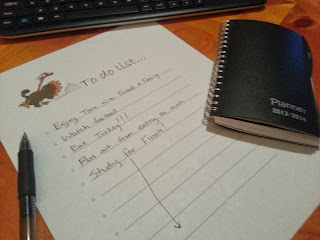 To do list...
Enjoy Time with Friends & Family
Watch football
Eat Turkey!!!
Pass out from eating to much
Study for Finals!
Planner
2013/2014